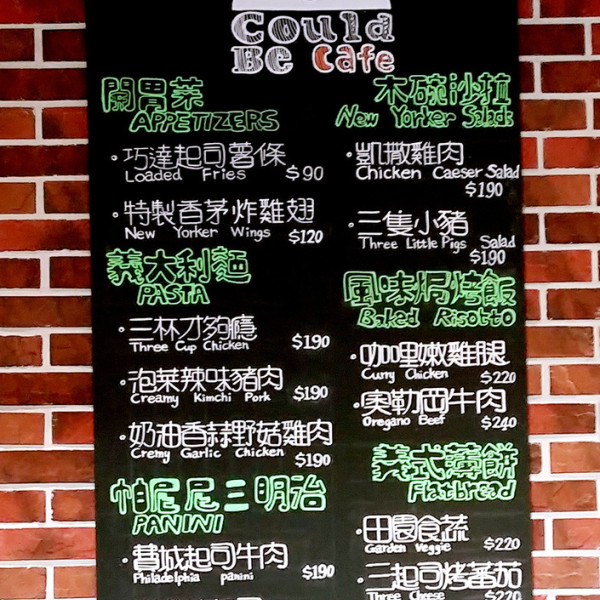 Could
Be Cafe
開胃菜
APPETIZERS
·巧達起司薯條
Loaded Fries $90
·特製香茅炸雞翅
New Yorker Wings $120
義大利麵
PASTA
·三杯才夠癮
Three Cup Chicken $190
·泡菜辣味豬肉
Creamy Kimchi Pork $190
·奶油香蒜野菇雞肉
Cremy Garlic Chicken $190
帕尼尼三明治
PANINI
·費城起司牛肉
Philadelphia panini $190
木碗沙拉
New Yorker Salads
·凱撒雞肉
Chicken Caeser Salad
$190
·三隻小豬
Three Little Pigs Salad
$190
風味焗烤飯
Baked Risotto
·咖哩嫩雞腿
Curry Chicken $220
·奧勒岡牛肉
Oregano Beef $240
義式薄餅
Flatbread
·田園食蔬
Garden Veggie $220
·三起司烤蕃茄
Three Cheese $220